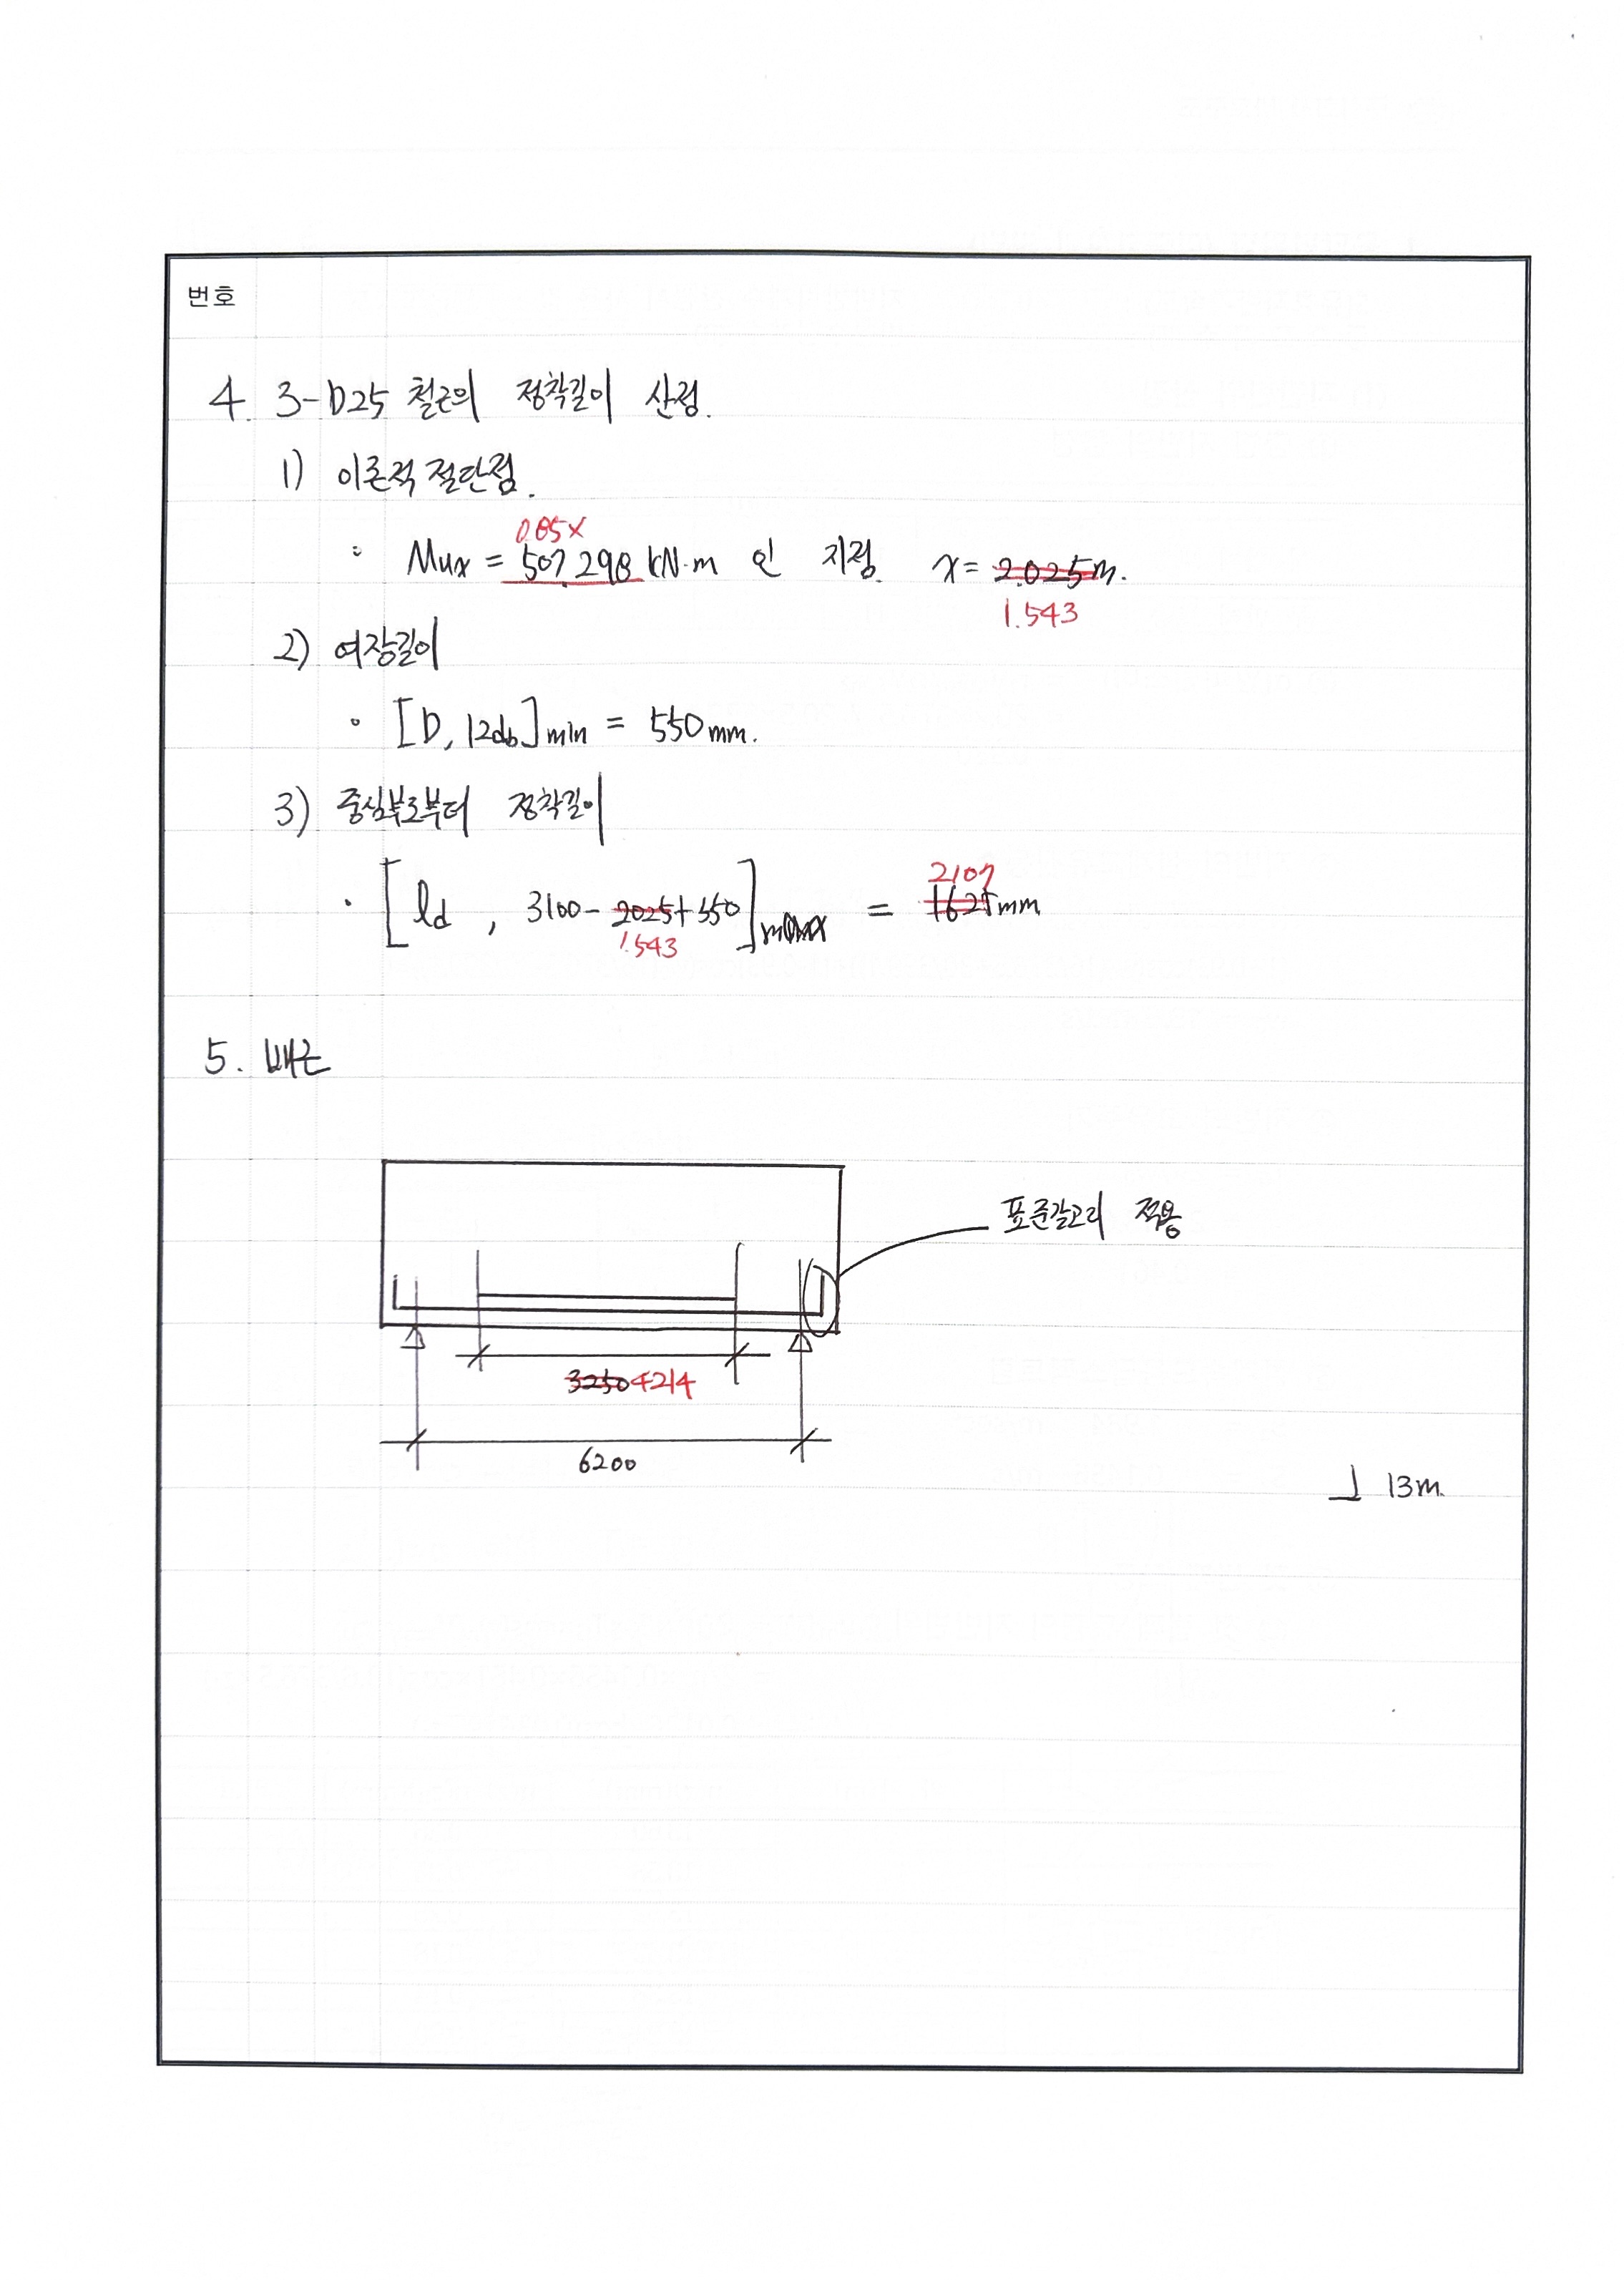 번호
4. 3-D25 철근의 정착길이 산정.
1) 이론적 절단점.
0.85×
: Mux = 507.298 kN·m 인 지점. x = 2.025m.
1.543
2) 여장길이
· [D, 12db]min = 550mm.
3) 중심부로부터 정착길이
2107
· [ld, 3100-2025+550]max = 1625mm
1.543
5. 배근
표준갈고리 적용
3250 4214
6200
⅃ 13m.